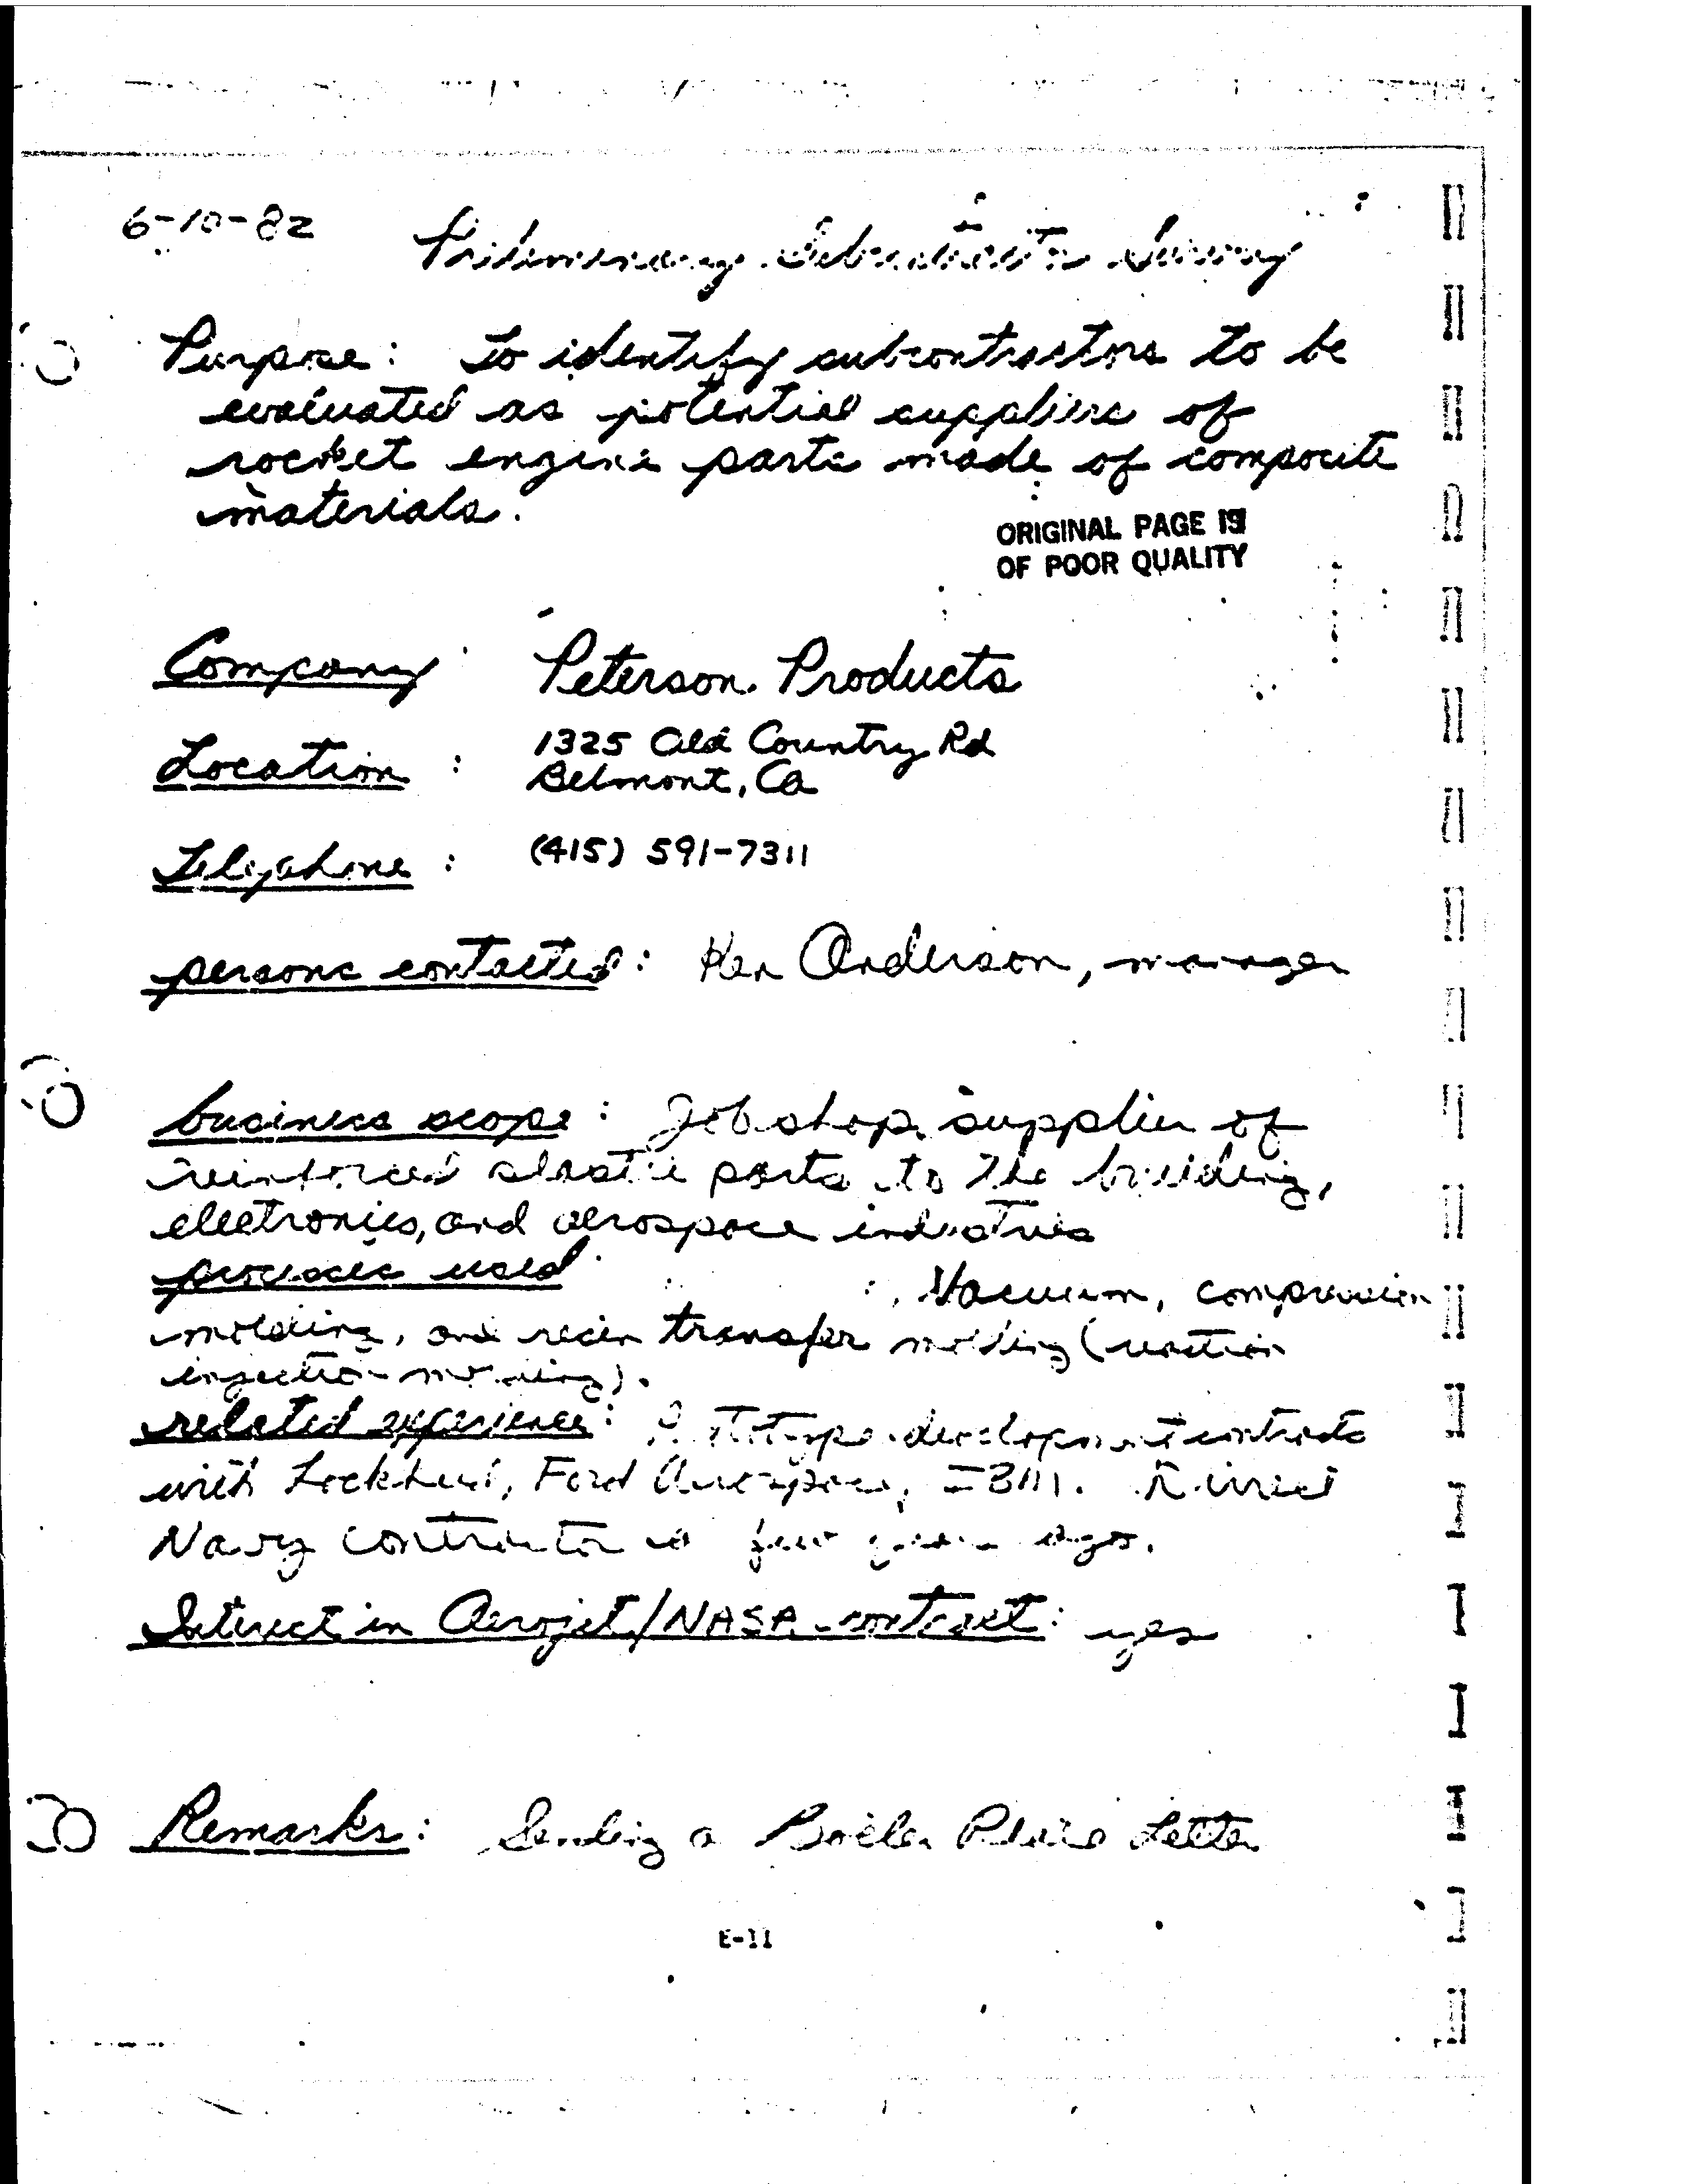 6-10-82
Preliminary Subcontractor Survey
Purpose: To identify subcontractors to be
evaluated as potential suppliers of
rocket engine parts made of composite
materials.
ORIGINAL PAGE IS
OF POOR QUALITY
Company: Peterson Products
Location: 1325 Old Country Rd
Belmont, Ca
Telephone: (415) 591-7311
persons contacted: Ken Anderson, manager
business scope: Job shop supplier of
reinforced plastic parts to the building,
electronics, and aerospace industries
processes used: Vacuum, compression
molding, and resin transfer molding (reaction
injection molding).
related experience: Prototype development contracts
with Lockheed, Ford Aerospace, IBM.
Navy contractor a few years ago.
Interest in Aerojet/NASA contract: yes
Remarks: Sending a Boiler Plate Letter
E-11